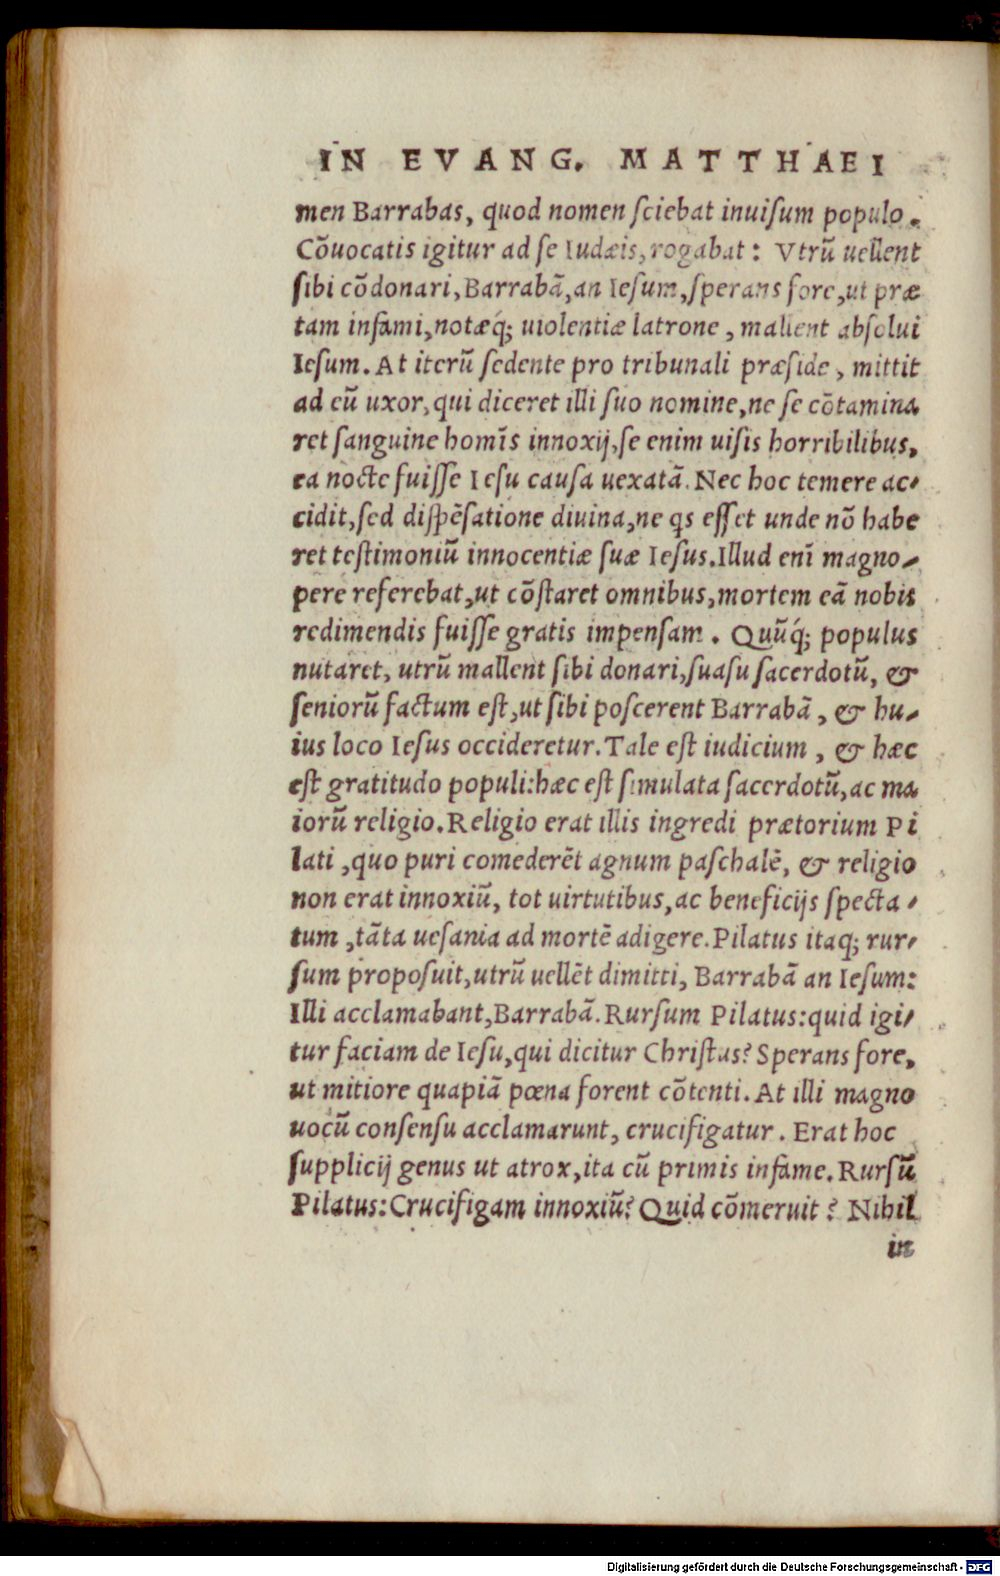 IN EVANG. MATTHAEI
men Barrabas, quod nomen ſciebat inuiſum populo.
Cõuocatis igitur ad ſe Iudæis, rogabat: Vtrũ uellent
ſibi cõdonari, Barrabã, an Ieſum, ſperans fore, ut præ
tam infami, notæq́; uiolentiæ latrone, mallent abſolui
Ieſum. At iterũ ſedente pro tribunali præſide, mittit
ad eũ uxor, qui diceret illi ſuo nomine, ne ſe cõtamina
ret ſanguine homĩs innoxij, ſe enim uiſis horribilibus,
ea nocte fuiſſe Ieſu cauſa uexatã. Nec hoc temere ac⸗
cidit, ſed diſpẽſatione diuina, ne qs eſſet unde nõ habe
ret teſtimoniũ innocentiæ ſuæ Ieſus. Illud enĩ magno⸗
pere referebat, ut cõſtaret omnibus, mortem eã nobis
redimendis fuiſſe gratis impenſam. Quũq́; populus
nutaret, utrũ mallent ſibi donari, ſuaſu ſacerdotũ, &
ſeniorũ factum eſt, ut ſibi poſcerent Barrabã, & hu⸗
ius loco Ieſus occideretur. Tale eſt iudicium, & hæc
eſt gratitudo populi: hæc eſt ſimulata ſacerdotũ, ac ma
iorũ religio. Religio erat illis ingredi prætorium Pi
lati, quo puri comederẽt agnum paſchalẽ, & religio
non erat innoxiũ, tot uirtutibus, ac beneficijs ſpecta⸗
tum, tãta ueſania ad mortẽ adigere. Pilatus itaq; rur⸗
ſum propoſuit, utrũ uellẽt dimitti, Barrabã an Ieſum:
Illi acclamabant, Barrabã. Rurſum Pilatus: quid igi⸗
tur faciam de Ieſu, qui dicitur Chriſtus? Sperans fore,
ut mitiore quapiã pœna forent cõtenti. At illi magno
uocũ conſenſu acclamarunt, crucifigatur. Erat hoc
ſupplicij genus ut atrox, ita cũ primis infame. Rurſũ
Pilatus: Crucifigam innoxiũ? Quid cõmeruit? Nihil
in
Digitalisierung gefördert durch die Deutsche Forschungsgemeinschaft - DFG